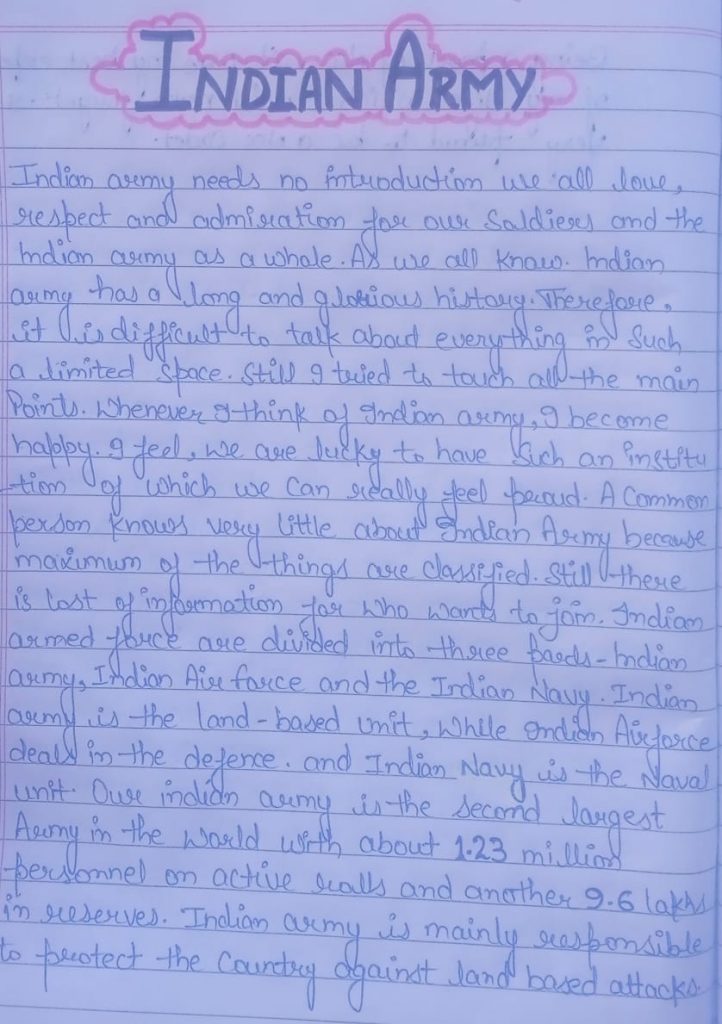 INDIAN ARMY
Indian army needs no introduction we all love,
respect and admiration for our Soldiers and the
Indian army as a whole. As we all know. Indian
army has a long and glorious history. Therefore,
it is difficult to talk about everything in Such
a limited space. Still I tried to touch all the main
Points. Whenever I think of Indian army, I become
happy. I feel, we are lucky to have Such an institu
-tion of which we can really feel proud. A Common
person knows very little about Indian Army because
maximum of the things are classified. Still there
is lost of information for who wants to join. Indian
armed force are divided into three pards - Indian
army, Indian Air force and the Indian Navy. Indian
army is the land-based unit, While Indian Airforce
deals in the defence. and Indian Navy is the Naval
unit. Our indian army is the second largest
Army in the World with about 1.23 million
personnel on active ralls and another 9.6 lakhs
in reserves. Indian army is mainly responsible
to protect the Country against land based attacks.